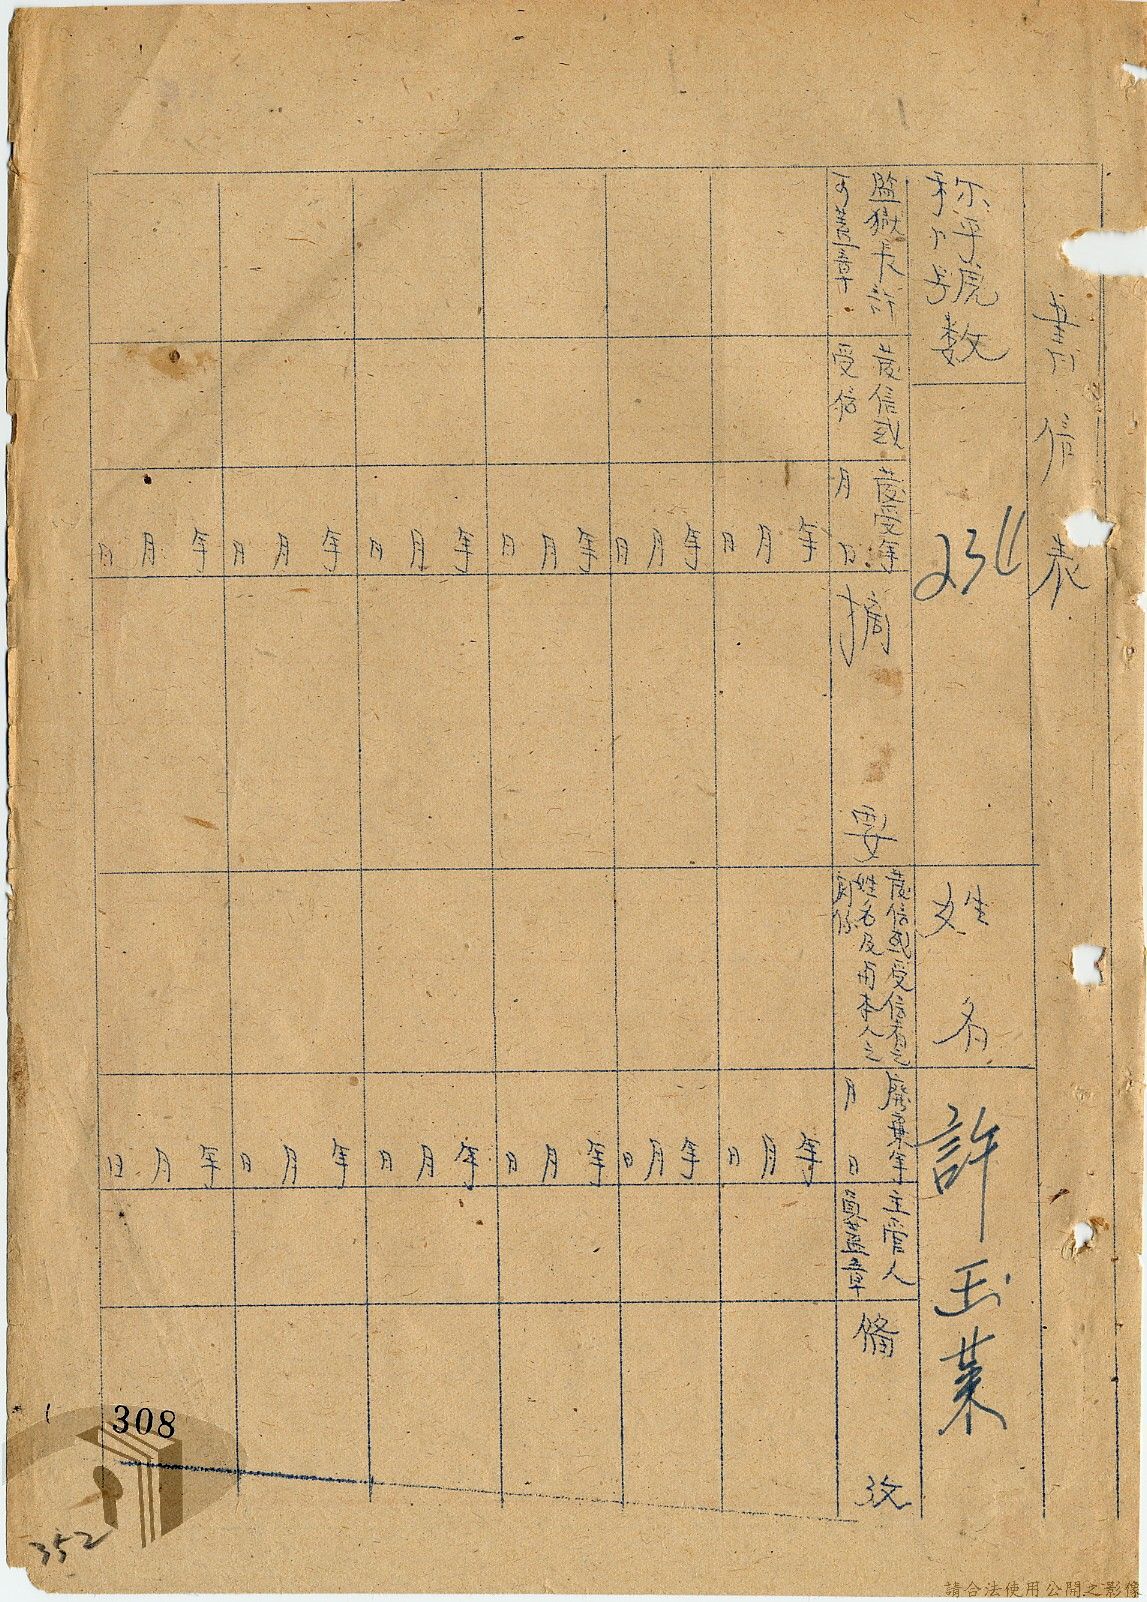 書信表
称呼號数
234
姓名
許玉葉
監獄長許
可蓋章
發信或
受信
發受年
月日
摘要
發信或受信者之
姓名及与本人之
関係
廢棄年
月日
主管人
員蓋章
備攷
年月日
年月日
年月日
年月日
年月日
年月日
年月日
年月日
年月日
年月日
年月日
年月日
308
352
請合法使用公開之影像